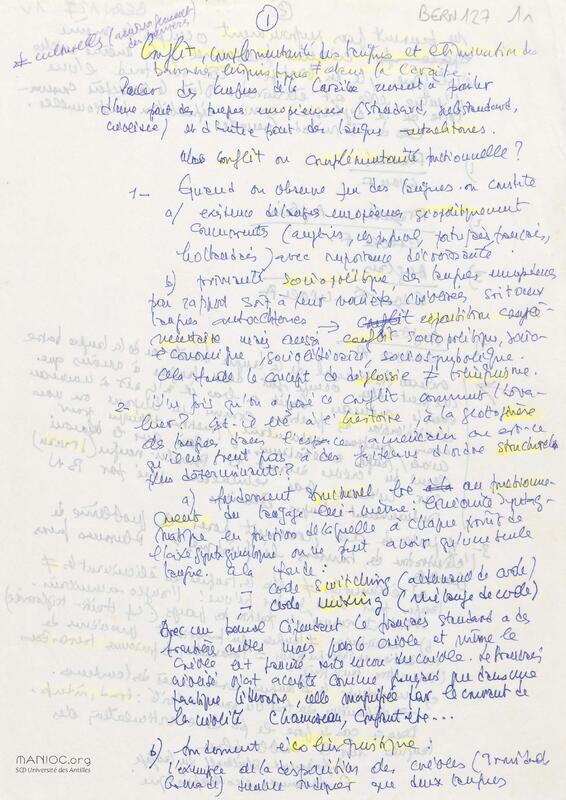 ①
BERN127 1
≠ culturelles (
des barrières
Conflit, complémentarité des langues et élimination des
barrières linguistiques dans la Caraïbe
Parler des langues de la Caraïbe revient à parler
d'une part des langues européennes (standard, substandard,
créolisée) et d'autre part des langues autochtones.
conflit ou complémentarité fonctionnelle ?
1- Quand on observe des langues on constate
a/ existence de langues européennes géopolitiquement
concurrentes (anglais, espagnol, portugais, français,
hollandais) avec importance décroissante
b) primauté sociopolitique des langues européennes
par rapport soit à leur variétés créolisées soit aux
langues autochtones → conflit répartition complé-
mentaire mais aussi conflit sociopolitique, socio-
économique, sociolittéraire, sociosymbolique.
Cela fonde le concept de diglossie ≠ bilinguisme.
2- fois qu'on a posé ce conflit comment l'éva-
luer ? est-il lié à l'histoire, à la
des langues dans l'espace américain ou est-ce
qu'il pas à des facteurs d'ordre structurel
plus déterminants ?
a) fondement structurel lié au fonctionne-
ment du langage lui-même. syntag-
matique en fonction de laquelle à chaque point de
l'axe syntagmatique on ne peut avoir qu'une seule
langue. à la fois :
- code switching (alternance de code)
- code mixing (mélange de code)
Avec un cependant le français standard a des
frontières nettes mais pas le créole et même le
créole est du créole. Le français
créolisé n'est accepté comme français que dans une
pratique littéraire, celle magnifiée par le courant de
la créolité Chamoiseau, Confiant etc...
b) fondement écolinguistique :
L'exemple de la disparition des créoles (Trinidad
Grenade) semble indiquer que deux langues
MANIOC.org
SCD Université des Antilles